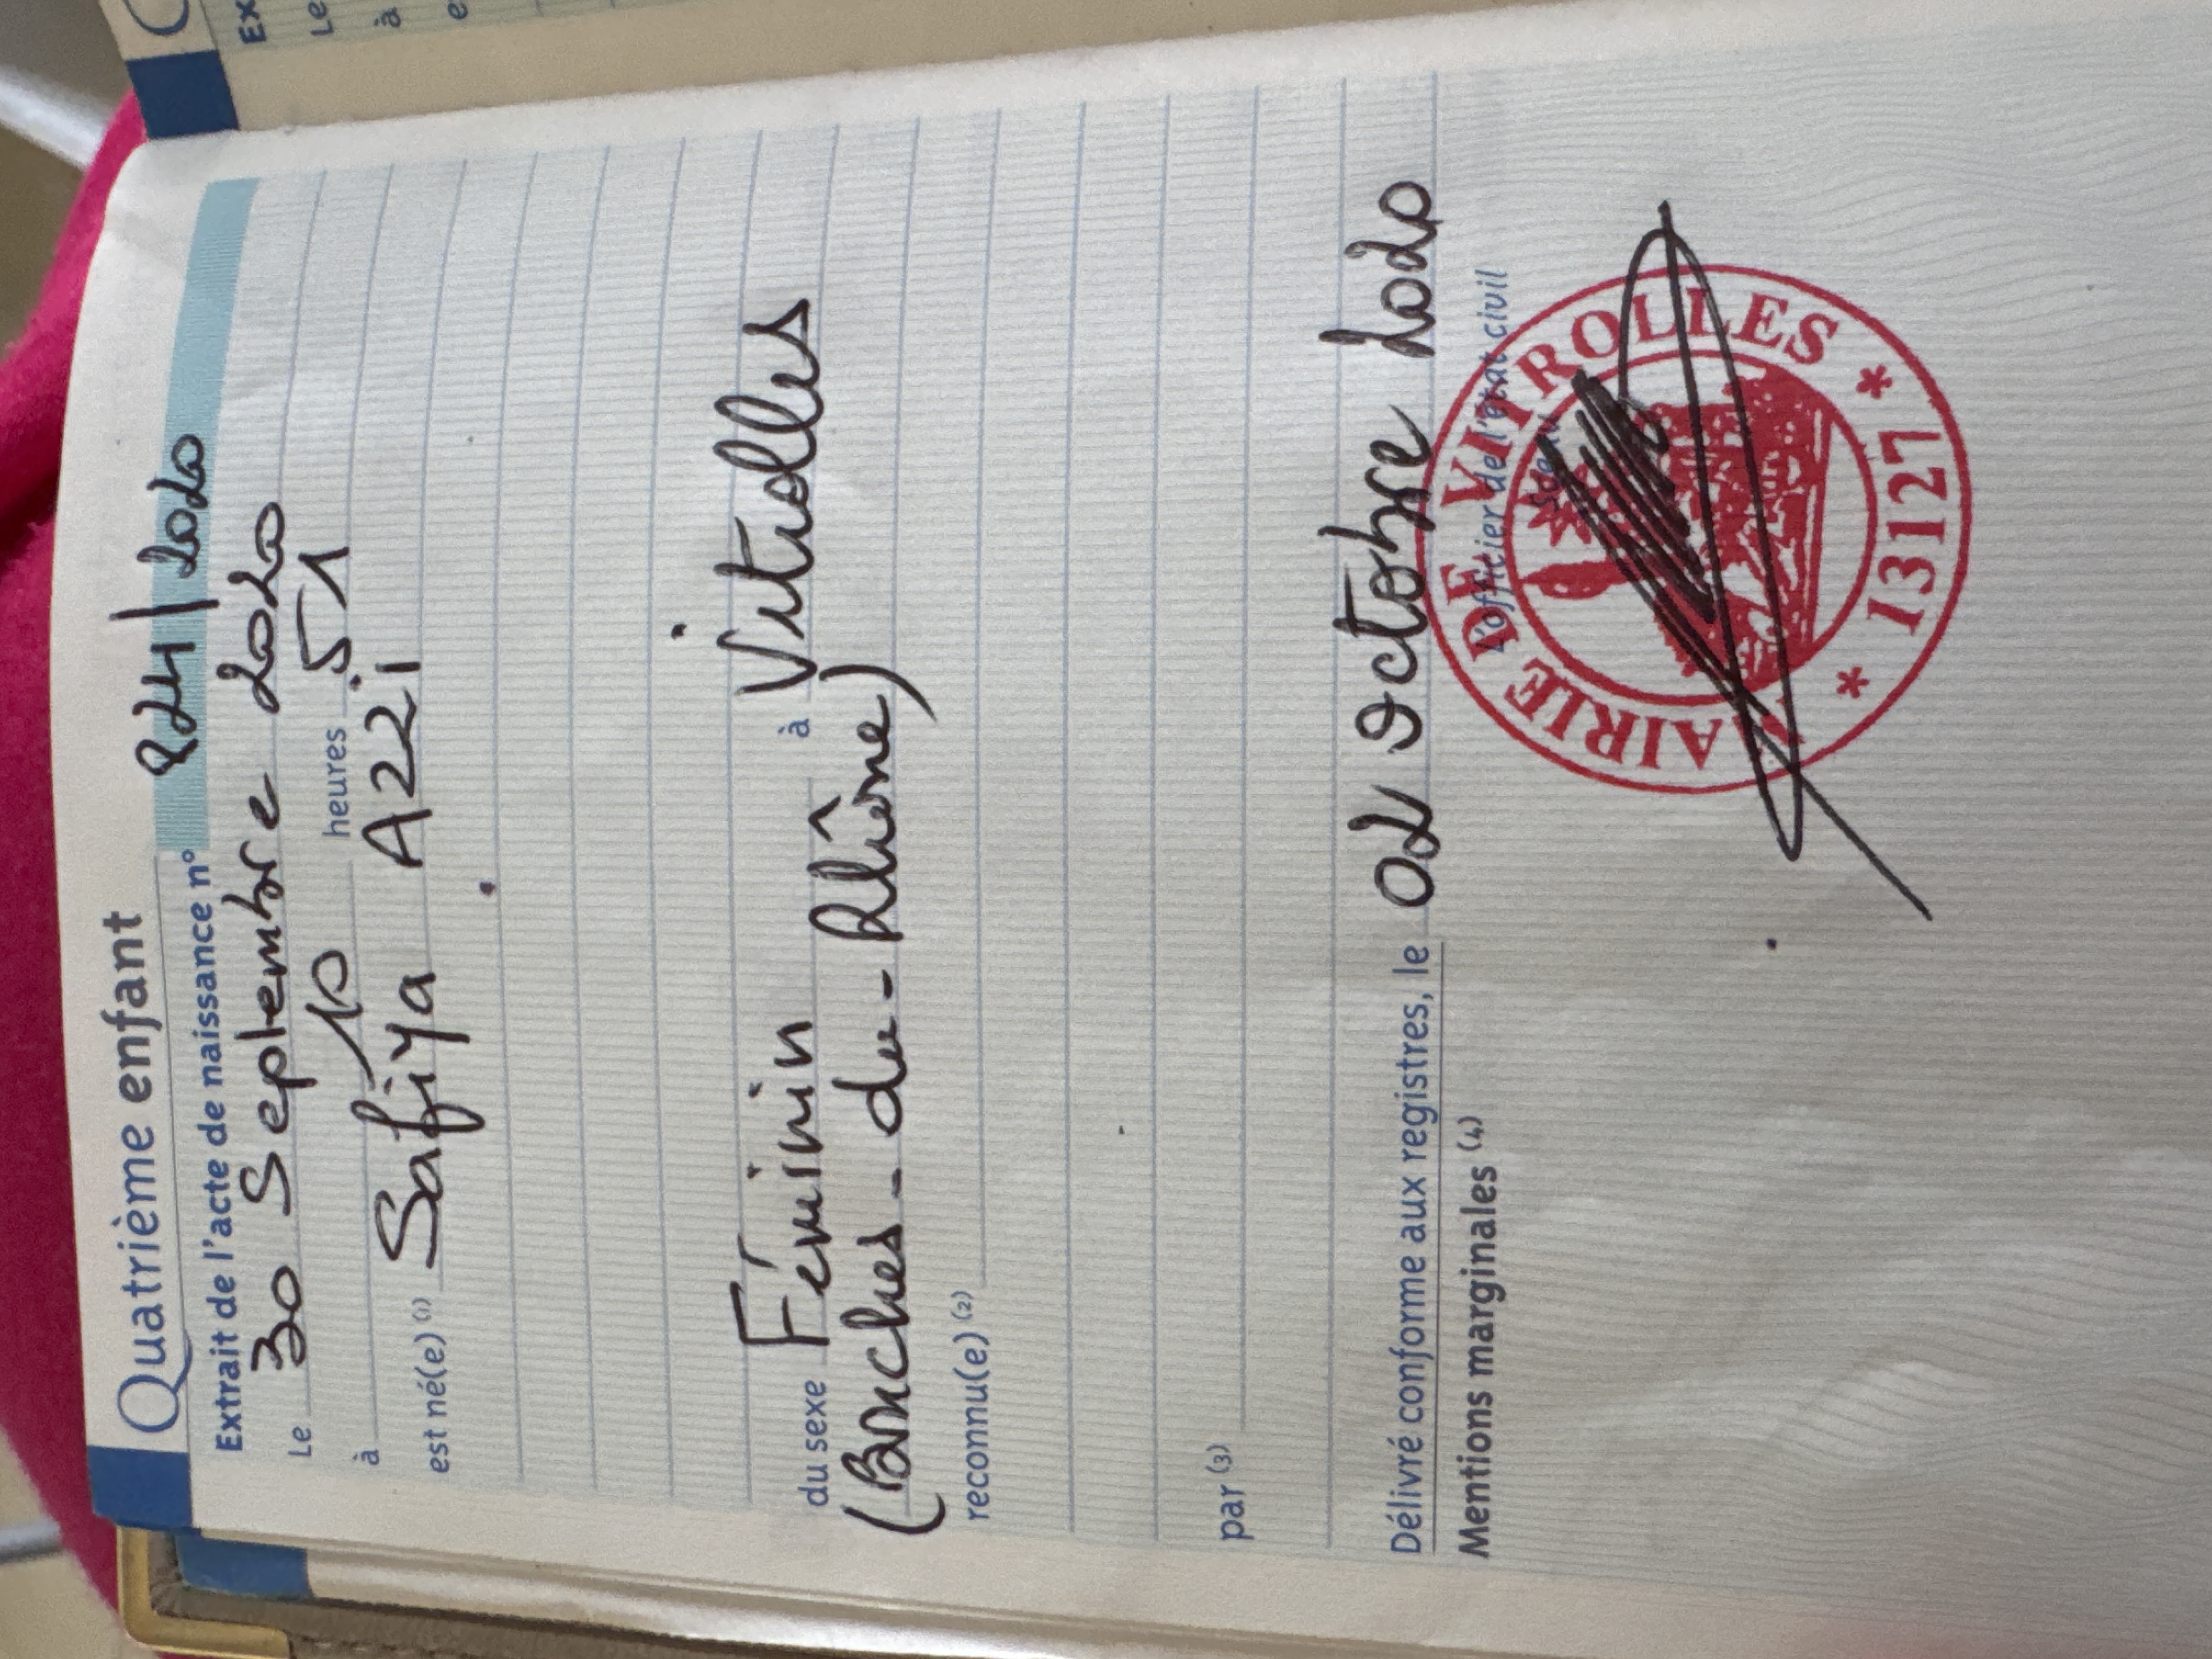 Quatrième enfant
Extrait de l'acte de naissance n° 824/2020
Le 30 Septembre 2020
à 10 heures 51
est né(e) (1) Safiya AZZi
du sexe Féminin à Vitrolles
(Bouches-du-Rhône)
reconnu(e) (2)
par (3)
Délivré conforme aux registres, le 02 Octobre 2020
L'officier de l'état civil
Mentions marginales (4)
MAIRIE DE VITROLLES
* 13127 *
Ex
Le
à
e